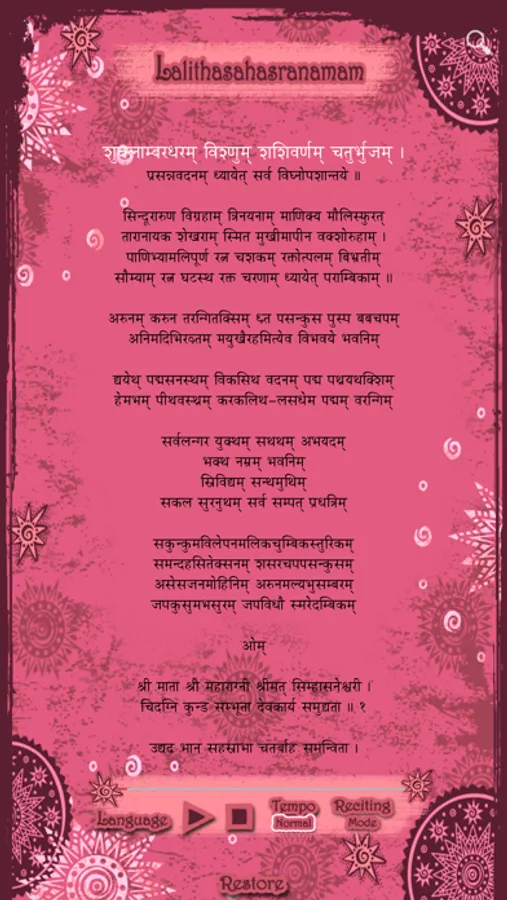 Lalithasahasranamam
शुक्लाम्बरधरम् विश्णुम् शशिवर्णम् चतुर्भुजम् ।
प्रसन्नवदनम् ध्यायेत् सर्व विघ्नोपशान्तये ॥
सिन्दूरारुण विग्रहाम् त्रिनयनाम् माणिक्य मौलिस्फुरत्
तारानायक शेखराम् स्मित मुखीमापीन वक्शोरुहाम् ।
पाणिभ्यामलिपूर्ण रत्न चशकम् रक्तोत्पलम् बिभ्रतीम्
सौम्याम् रत्न घटस्थ रक्त चरणाम् ध्यायेत् पराम्बिकाम् ॥
अरुनम् करुन तरन्गितक्सिम् ध्र्त पसन्कुस पुस्प बबचपम्
अनिमदिभिरव्र्तम् मयुखैरहमित्येव विभवये भवनिम्
द्ययेथ् पद्मसनस्थम् विकसिथ वदनम् पद्म पथ्रयथक्शिम्
हेमभम् पीथवस्थ्रम् करकलिथ-लसधेम पद्मम् वरन्गिम्
सर्वलन्गर युक्थम् सथथम् अभयदम्
भक्थ नम्रम् भवनिम्
स्रिविद्यम् सन्थमुथिम्
सकल सुरनुथम् सर्व सम्पत् प्रधत्रिम्
सकुन्कुमविलेपनमलिकचुम्बिकस्तुरिकम्
समन्दहसितेक्सनम् शसरचपपसन्कुसम्
असेसजनमोहिनिम् अरुनमल्यभुसम्बरम्
जपकुसुमभसुरम् जपविधौ स्मरेदम्बिकम्
ओम्
श्री माता श्री महाराग्नी श्रीमत् सिम्हासनेश्वरी ।
चिदग्नि कुन्ड सम्भूता देवकार्य समुद्यता ॥ १
उद्यद भानु सहस्राभा चतुर्बाहु समन्विता ।
Language
Tempo
Normal
Reciting
Mode
Restore